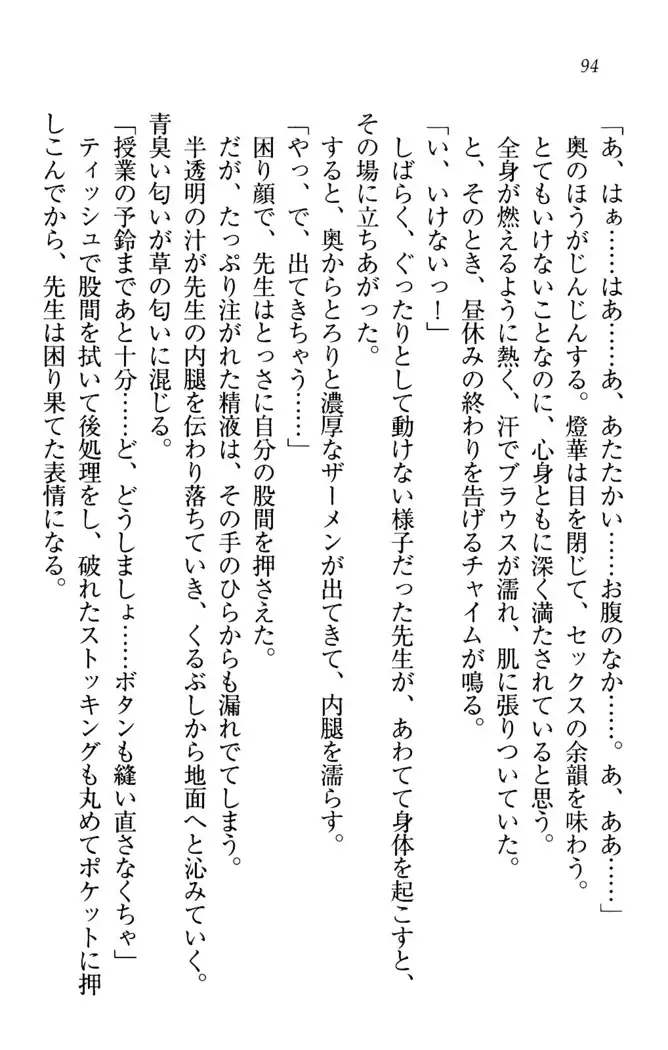 94
「あ、はぁ……はあ……あ、あたたかい……お腹のなか……。あ、ああ……」
奥のほうがじんじんする。燈華は目を閉じて、セックスの余韻を味わう。
とてもいけないことなのに、心身ともに深く満たされていると思う。
全身が燃えるように熱く、汗でブラウスが濡れ、肌に張りついていた。
と、そのとき、昼休みの終わりを告げるチャイムが鳴る。
「い、いけないっ！」
しばらく、ぐったりとして動けない様子だった先生が、あわてて身体を起こすと、
その場に立ちあがった。
すると、奥からとろりと濃厚なザーメンが出てきて、内腿を濡らす。
「やっ、で、出てきちゃう……」
困り顔で、先生はとっさに自分の股間を押さえた。
だが、たっぷり注がれた精液は、その手のひらからも漏れでてしまう。
半透明の汁が先生の内腿を伝わり落ちていき、くるぶしから地面へと沁みていく。
青臭い匂いが草の匂いに混じる。
「授業の予鈴まであと十分……ど、どうしましょ……ボタンも縫い直さなくちゃ」
ティッシュで股間を拭いて後処理をし、破れたストッキングも丸めてポケットに押
しこんでから、先生は困り果てた表情になる。